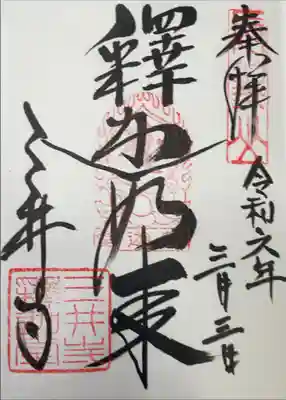 奉拝
令和六年
三月三日
釋迦如来
三井寺
三井寺